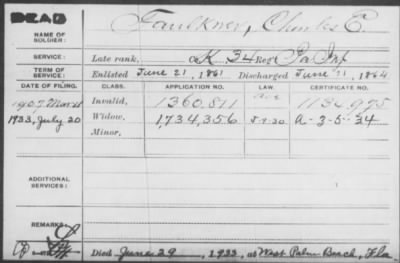 DEAD
NAME OF SOLDIER: Faulkner, Charles E.
SERVICE: Late rank, K 34 Reg't Pa Inf
TERM OF SERVICE: Enlisted June 21, 1861 Discharged June 11, 1864
DATE OF FILING. CLASS. APPLICATION NO. LAW. CERTIFICATE NO.
1907 Mar Invalid, 1360,811 1134,975
1933, July 20 Widow, 1,734,356 5-1-20 A-3-5-34
Minor,
ADDITIONAL SERVICES:
REMARKS:
Died June 29, 1933, at West Palm Beach, Fla